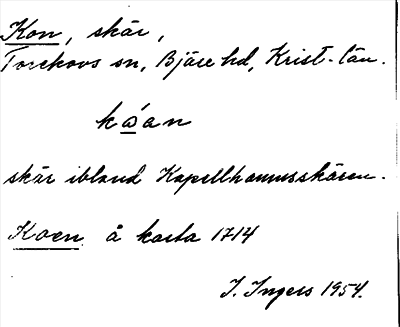 Kon, skär,
Torekovs sn, Bjäre hd, Krist-län.
kåan
skär ibland Kapellhamnsskären.
Koen å karta 1714
I. Ingers 1954.